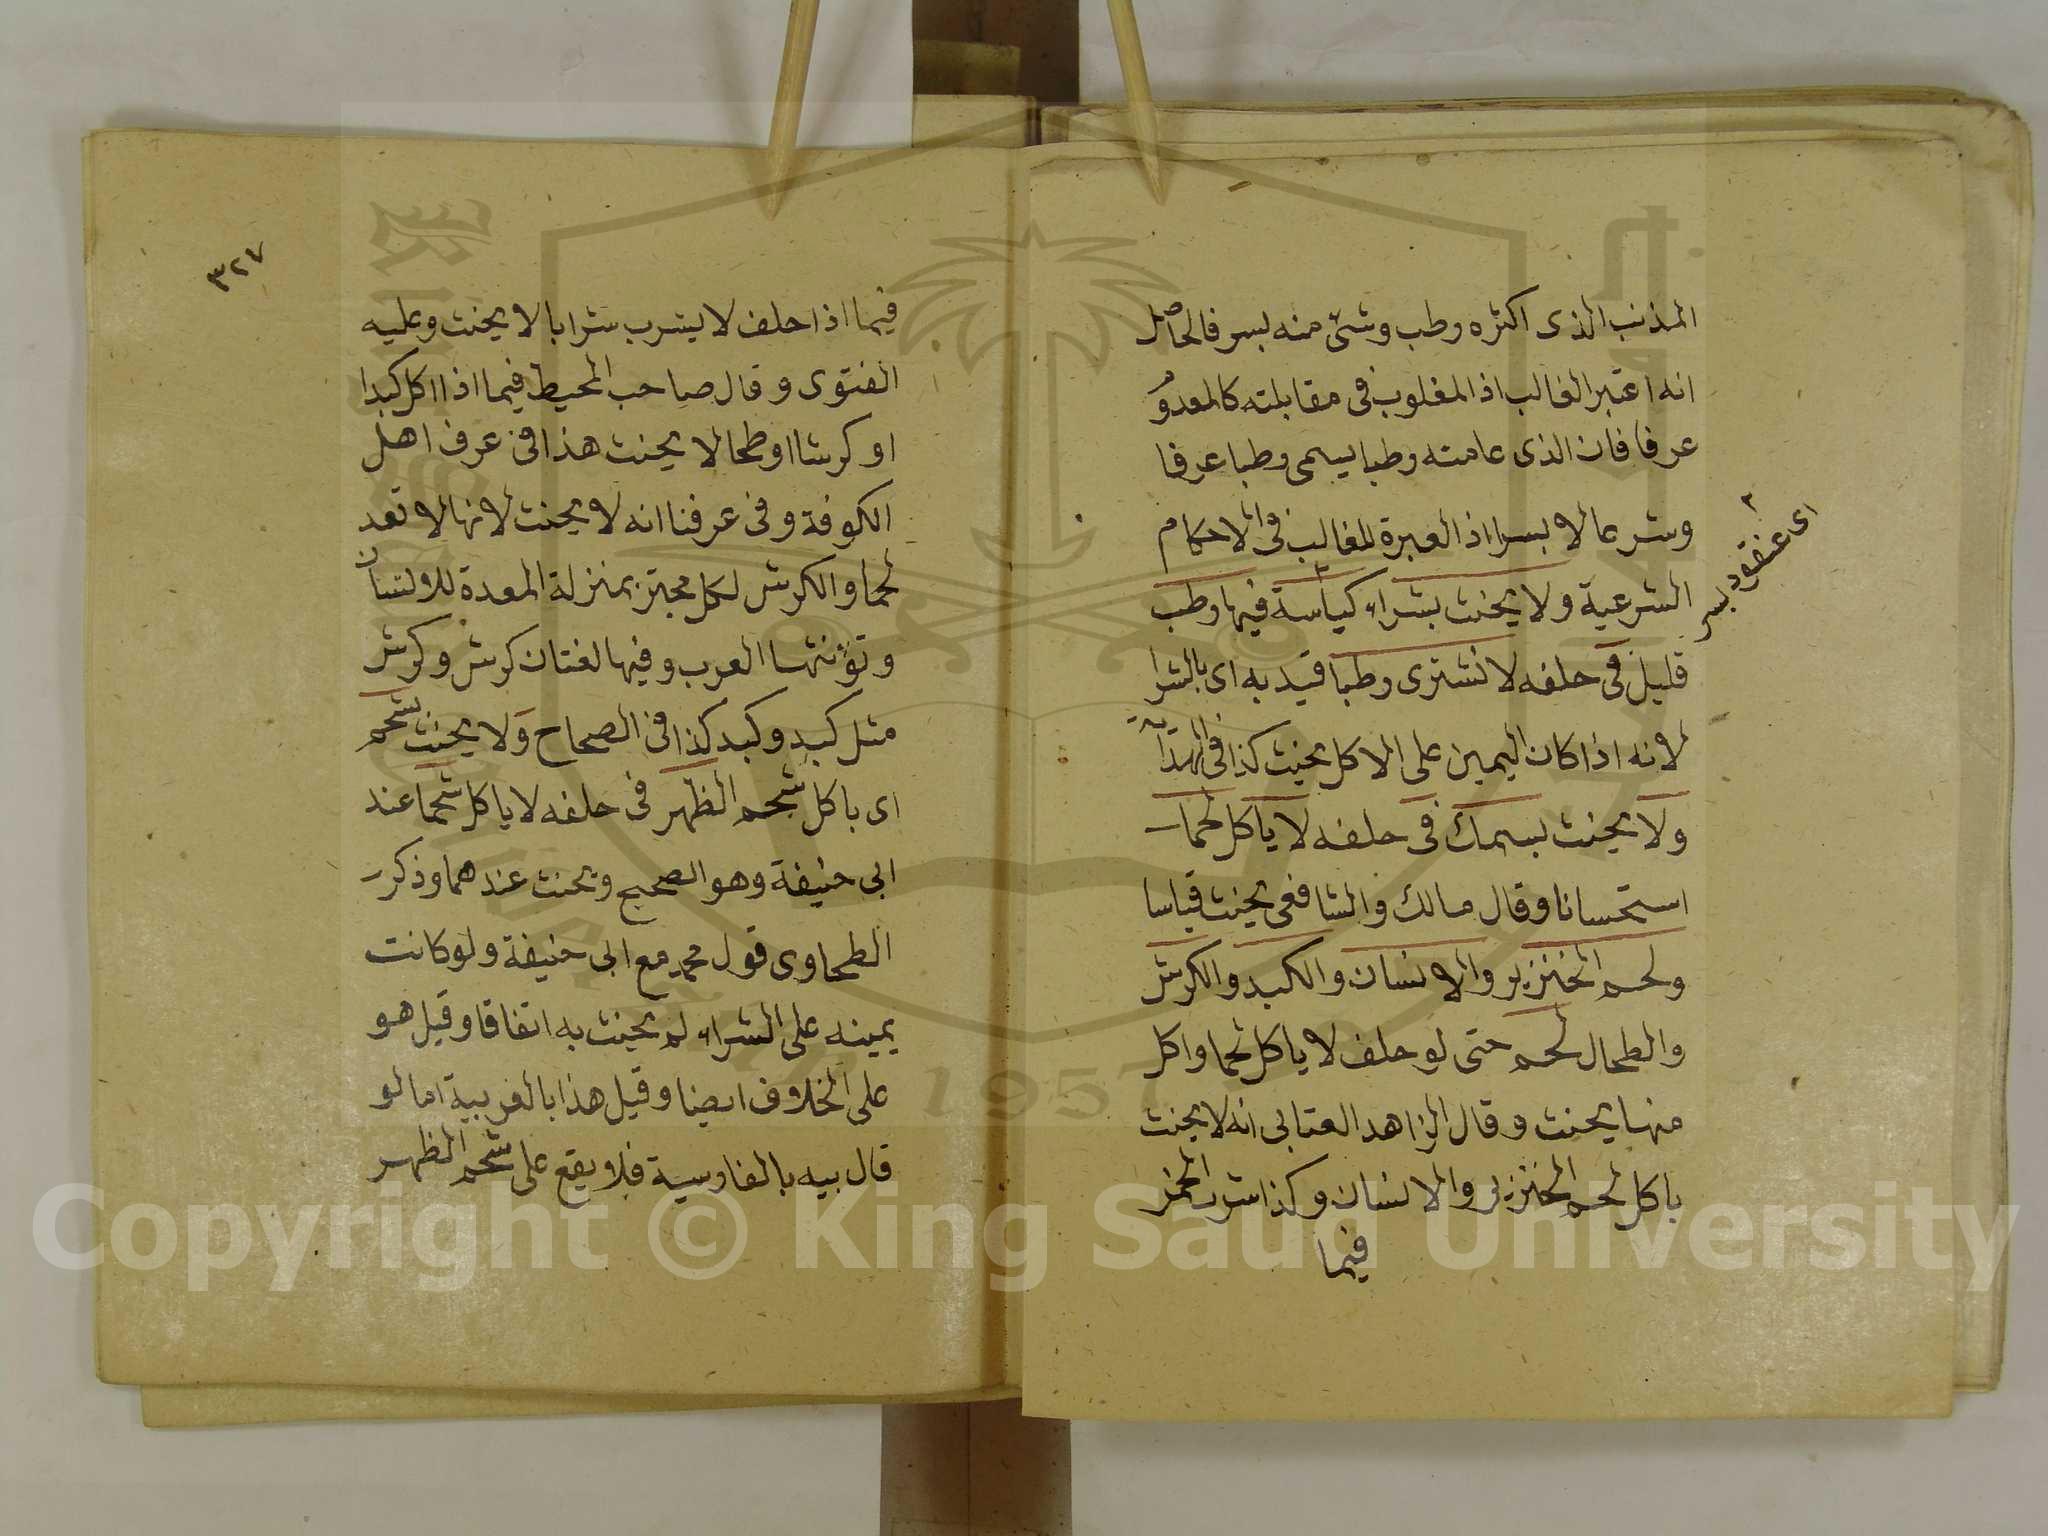 المذنب الذى اكثره رطب وشئ منه بسر فالحاصل
انه اعتبر الغالب اذ المغلوب فى مقابلته كالمعدوم
عرفا فان الذى عامته رطبا يسمى رطبا عرفا
وشرعا لا بسرا اذ العبرة للغالب فى الاحكام
الشرعية ولا يحنث بشراء كباسة فيها رطب
اى عنقود بسر
قليل فى حلفه لا نشترى رطبا قيد به اى بالشرا
لانه اذا كان اليمين على الاكل يحنث كذا فى الهداية
ولا يحنث بسمك فى حلفه لا ياكل لحما
استحسانا وقال مالك والشافعى يحنث قياسا
ولحم الخنزير والانسان والكبد والكرش
والطحال لحم حتى لو حلف لا ياكل لحما واكل
منها يحنث وقال الزاهد العتابى انه لا يحنث
باكل لحم الخنزير والانسان وكذا شرب الخمر
فيما
٣٢٧
فيما اذا حلف لا يشرب شرابا لا يحنث وعليه
الفتوى وقال صاحب المحيط فيما اذا اكل كبدا
او كرشا او طحالا يحنث هذا فى عرف اهل
الكوفة وفى عرفنا انه لا يحنث لانها لا تعد
لحما والكرش لكل مجتر بمنزلة المعدة للانسان
وتؤنثها العرب وفيها لغتان كرش وكرش
مثل كبد وكبد كذا فى الصحاح ولا يحنث بشحم
اى باكل شحم الظهر فى حلفه لا ياكل شحما عند
ابى حنيفة وهو الصحيح ويحنث عندهما وذكر
الطحاوى قول محمد مع ابى حنيفة ولو كانت
يمينه على الشراء لم يحنث به اتفاقا وقيل هو
على الخلاف ايضا وقيل هذا بالعربية اما لو
قال بيه بالفارسية فلا يقع على شحم الظهر
Copyright © King Saud University
1957